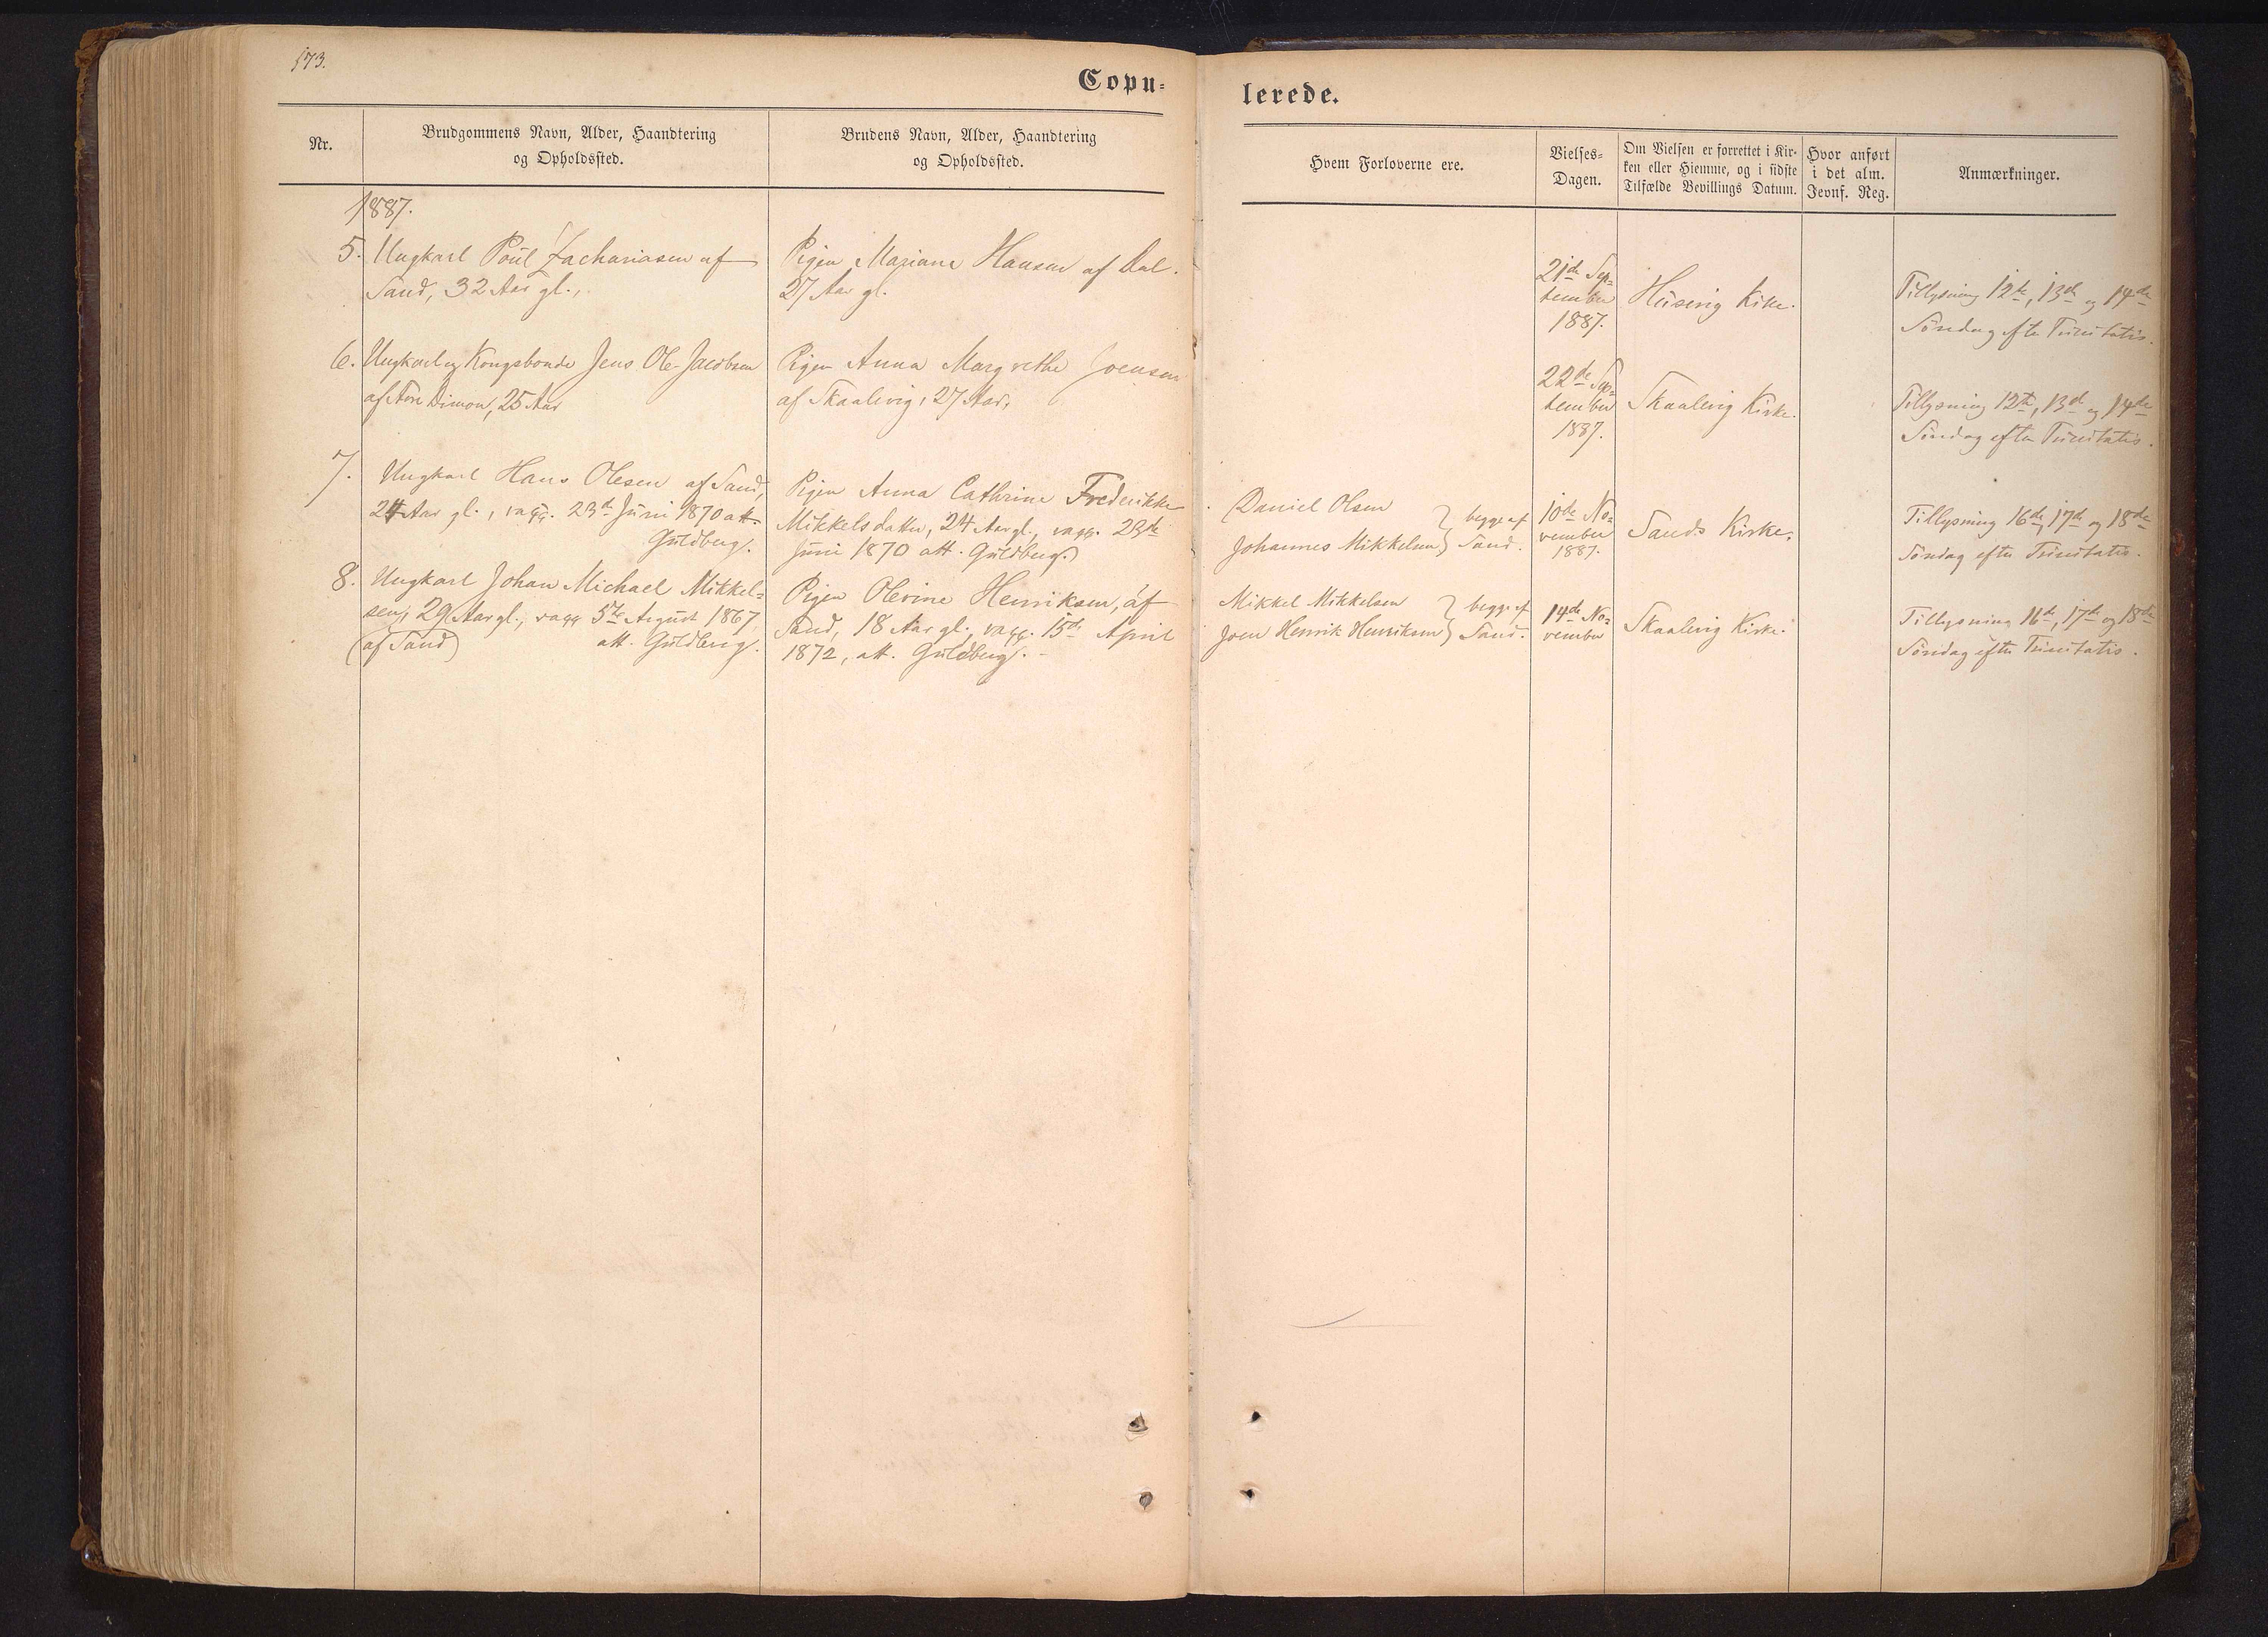 173.
Copu=
lerede.
Nr.
Brudgommens Navn, Alder, Haandtering
og Opholdssted.
Brudens Navn, Alder, Haandtering
og Opholdssted.
Hvem Forloverne ere.
Vielses=
Dagen.
Om Vielsen er forrettet i Kir-
ken eller Hiemme, og i sidste
Tilfælde Bevillings Datum.
Hvor anført
i det alm.
Jevnf. Reg.
Anmærkninger.
1887.
5. Ungkarl Poul Zachariasen af
Sand, 32 Aar gl.,
Pigen Mariane Hansen af Dal.
27 Aar gl.
21de Sep=
tember
1887.
Husevig Kirke.
Tillysning 12te, 13de og 14de
Søndag efter Trinitatis.
6. Ungkarl og Kongsbonde Jens Ole Jacobsen
af Store Dimon, 25 Aar
Pigen Anna Margrethe Joensen
af Skaalevig, 27 Aar.
22de Sep=
tember
1887.
Skaalevig Kirke.
Tillysning 12te, 13de og 14de
Søndag efter Trinitatis.
7. Ungkarl Hans Olesen af Sand,
24 Aar gl., vacc. 23de Juni 1870 att.
Guldberg.
Pigen Anna Cathrine Frederikke
Mikkelsdatter, 24 Aar gl., vacc. 23de
Juni 1870 att. Guldberg.
Daniel Olsen
Johannes Mikkelsen } begge af
Sand.
10de No=
vember
1887.
Sands Kirke.
Tillysning 16de, 17de og 18de
Søndag efter Trinitatis.
8. Ungkarl Johan Michael Mikkel=
sen, 29 Aar gl., vacc 5te August 1867
(af Sand) att. Guldberg.
Pigen Olevine Henriksen, af
Sand, 18 Aar gl., vacc. 15de April
1872, att. Guldberg.
Mikkel Mikkelsen
Joen Henrik Henriksen } begge af
Sand.
14de No=
vember
Skaalevig Kirke.
Tillysning 16de, 17de og 18de
Søndag efter Trinitatis.